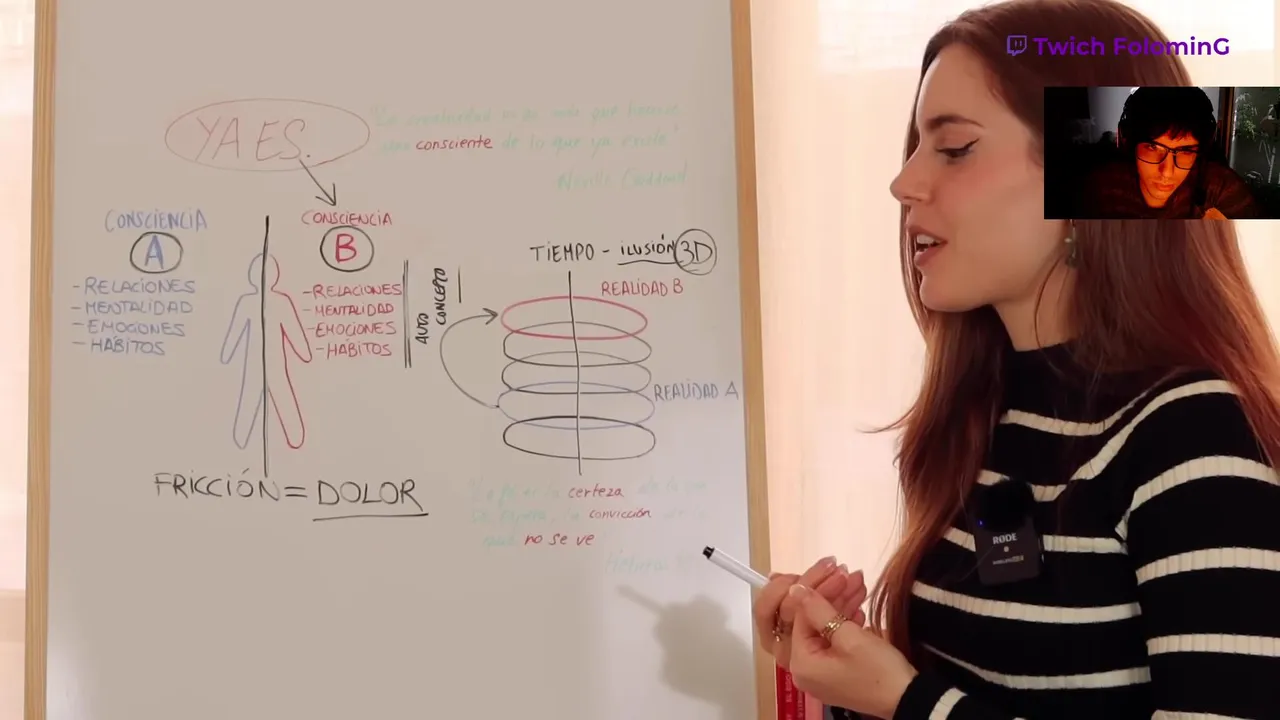 Twich FolominG
YA ES.
"La creatividad no es más que hacerse
consciente de lo que ya existe"
Neville Goddard
CONSCIENCIA
A
- RELACIONES
- MENTALIDAD
- EMOCIONES
- HÁBITOS
CONSCIENCIA
B
- RELACIONES
- MENTALIDAD
- EMOCIONES
- HÁBITOS
AUTO
CONCEPTO
TIEMPO - ILUSIÓN 3D
REALIDAD B
REALIDAD A
FRICCIÓN = DOLOR
certeza de lo que
se espera, la convicción
no se ve
RØDE